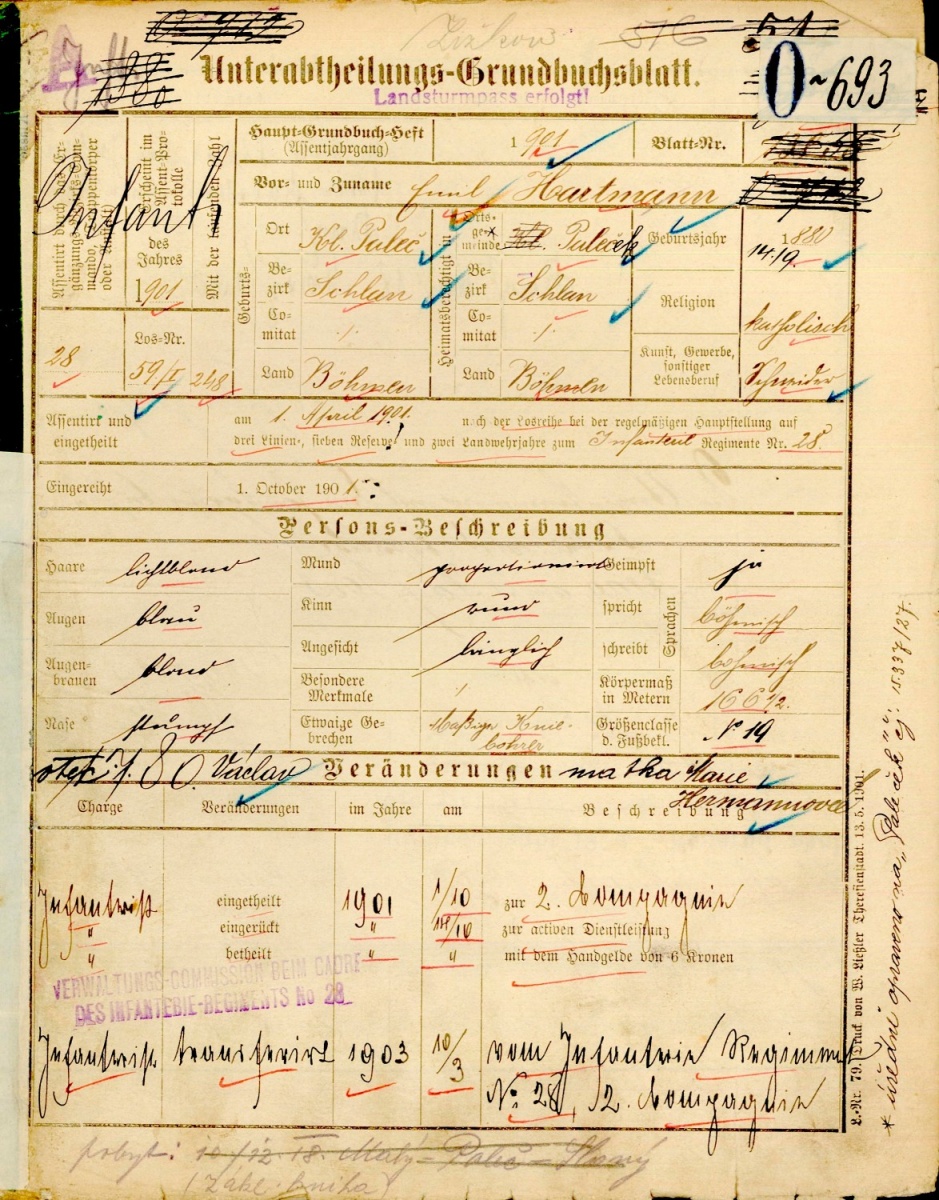 Žižkov 516
Unterabtheilungs-Grundbuchsblatt.
Landsturmpass erfolgt!
0~693
Assentirt durch das Ergänzungs-Bezirks-Commando, (Truppenkörper oder Anstalt)
Infant
28
Erscheint im Assent-Protokolle
des
Jahres
1901
Los-Nr.
59/I
Mit der laufenden Zahl
248
Haupt-Grundbuch-Heft
(Assentjahrgang)
1901
Blatt-Nr.
Vor- und Zuname Emil Hartmann
Geburts-
Ort Kl. Paleč
Bezirk Schlan
Comitat ./.
Land Böhmen
Heimatsberechtigt in
Ortsgemeinde * Kl. Paleček
Bezirk Schlan
Comitat ./.
Land Böhmen
Geburtsjahr 1880
14./9.
Religion katholisch
Kunst, Gewerbe, sonstiger Lebensberuf Schneider
Assentirt und eingetheilt
am 1. April 1901. nach der Losreihe bei der regelmäßigen Hauptstellung auf
drei Linien-, sieben Reserve- und zwei Landwehrjahre zum Infanterie Regimente Nr. 28.
Eingereiht 1. October 1901.
Persons-Beschreibung
Haare lichtblond
Augen blau
Augenbrauen blond
Nase stumpf
Mund proportionirt
Kinn rund
Angesicht länglich
Besondere Merkmale ./.
Etwaige Gebrechen Mäßige Kniebohrer
Geimpft ja
Sprachen
spricht böhmisch
schreibt böhmisch
Körpermaß in Metern 1·66½.
Größenclasse d. Fußbekl. No 19
otec: Václav Veränderungen matka Marie
Hermannová
Charge Veränderungen im Jahre am Beschreibung
Infanterist eingetheilt 1901 1/10 zur 2. Compagnie
" eingerückt " 14/10 zur activen Dienstleistung
" betheilt " " mit dem Handgelde von 6 Kronen
VERWALTUNGS-COMMISSION BEIM CADRE
DES INFANTERIE-REGIMENTS No 28
Infanterist transferirt 1903 10/3 vom Infanterie Regiment
No. 28, 2. Compagnie
pobyt: 10/12 18. Malý-Paleč-Slaný
(Zákl. kniha)
L.-Nr. 79. Druck von W. Ließler Theresienstadt. 13. 5. 1901.
* úředně opraveno na „Paleček" čj: 15337/27.